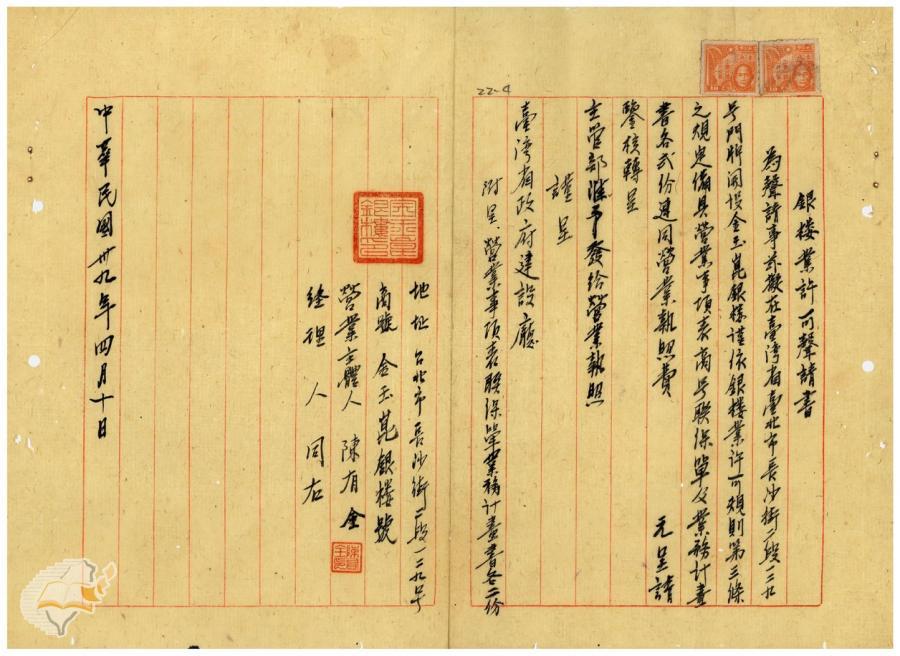 22-4
銀楼業許可聲請書
為聲請事茲擬在臺湾省臺北市長沙街二段一二九
号門牌開設金玉崑銀楼謹依銀楼業許可規則第三條
之規定備具營業事項表商号聯保單及業務計畫
書各弍份連同營業執照費 元呈請
鑒核轉呈
主管部 發給營業執照
謹呈
臺湾省政府建設廳
附呈、營業事項表聯保單業務計畫書各二份
地址 台北市長沙街二段一二九号
商號 金玉崑銀楼號
營業主體人 陳有全
经理人 同右
中華民國卅九年四月十日